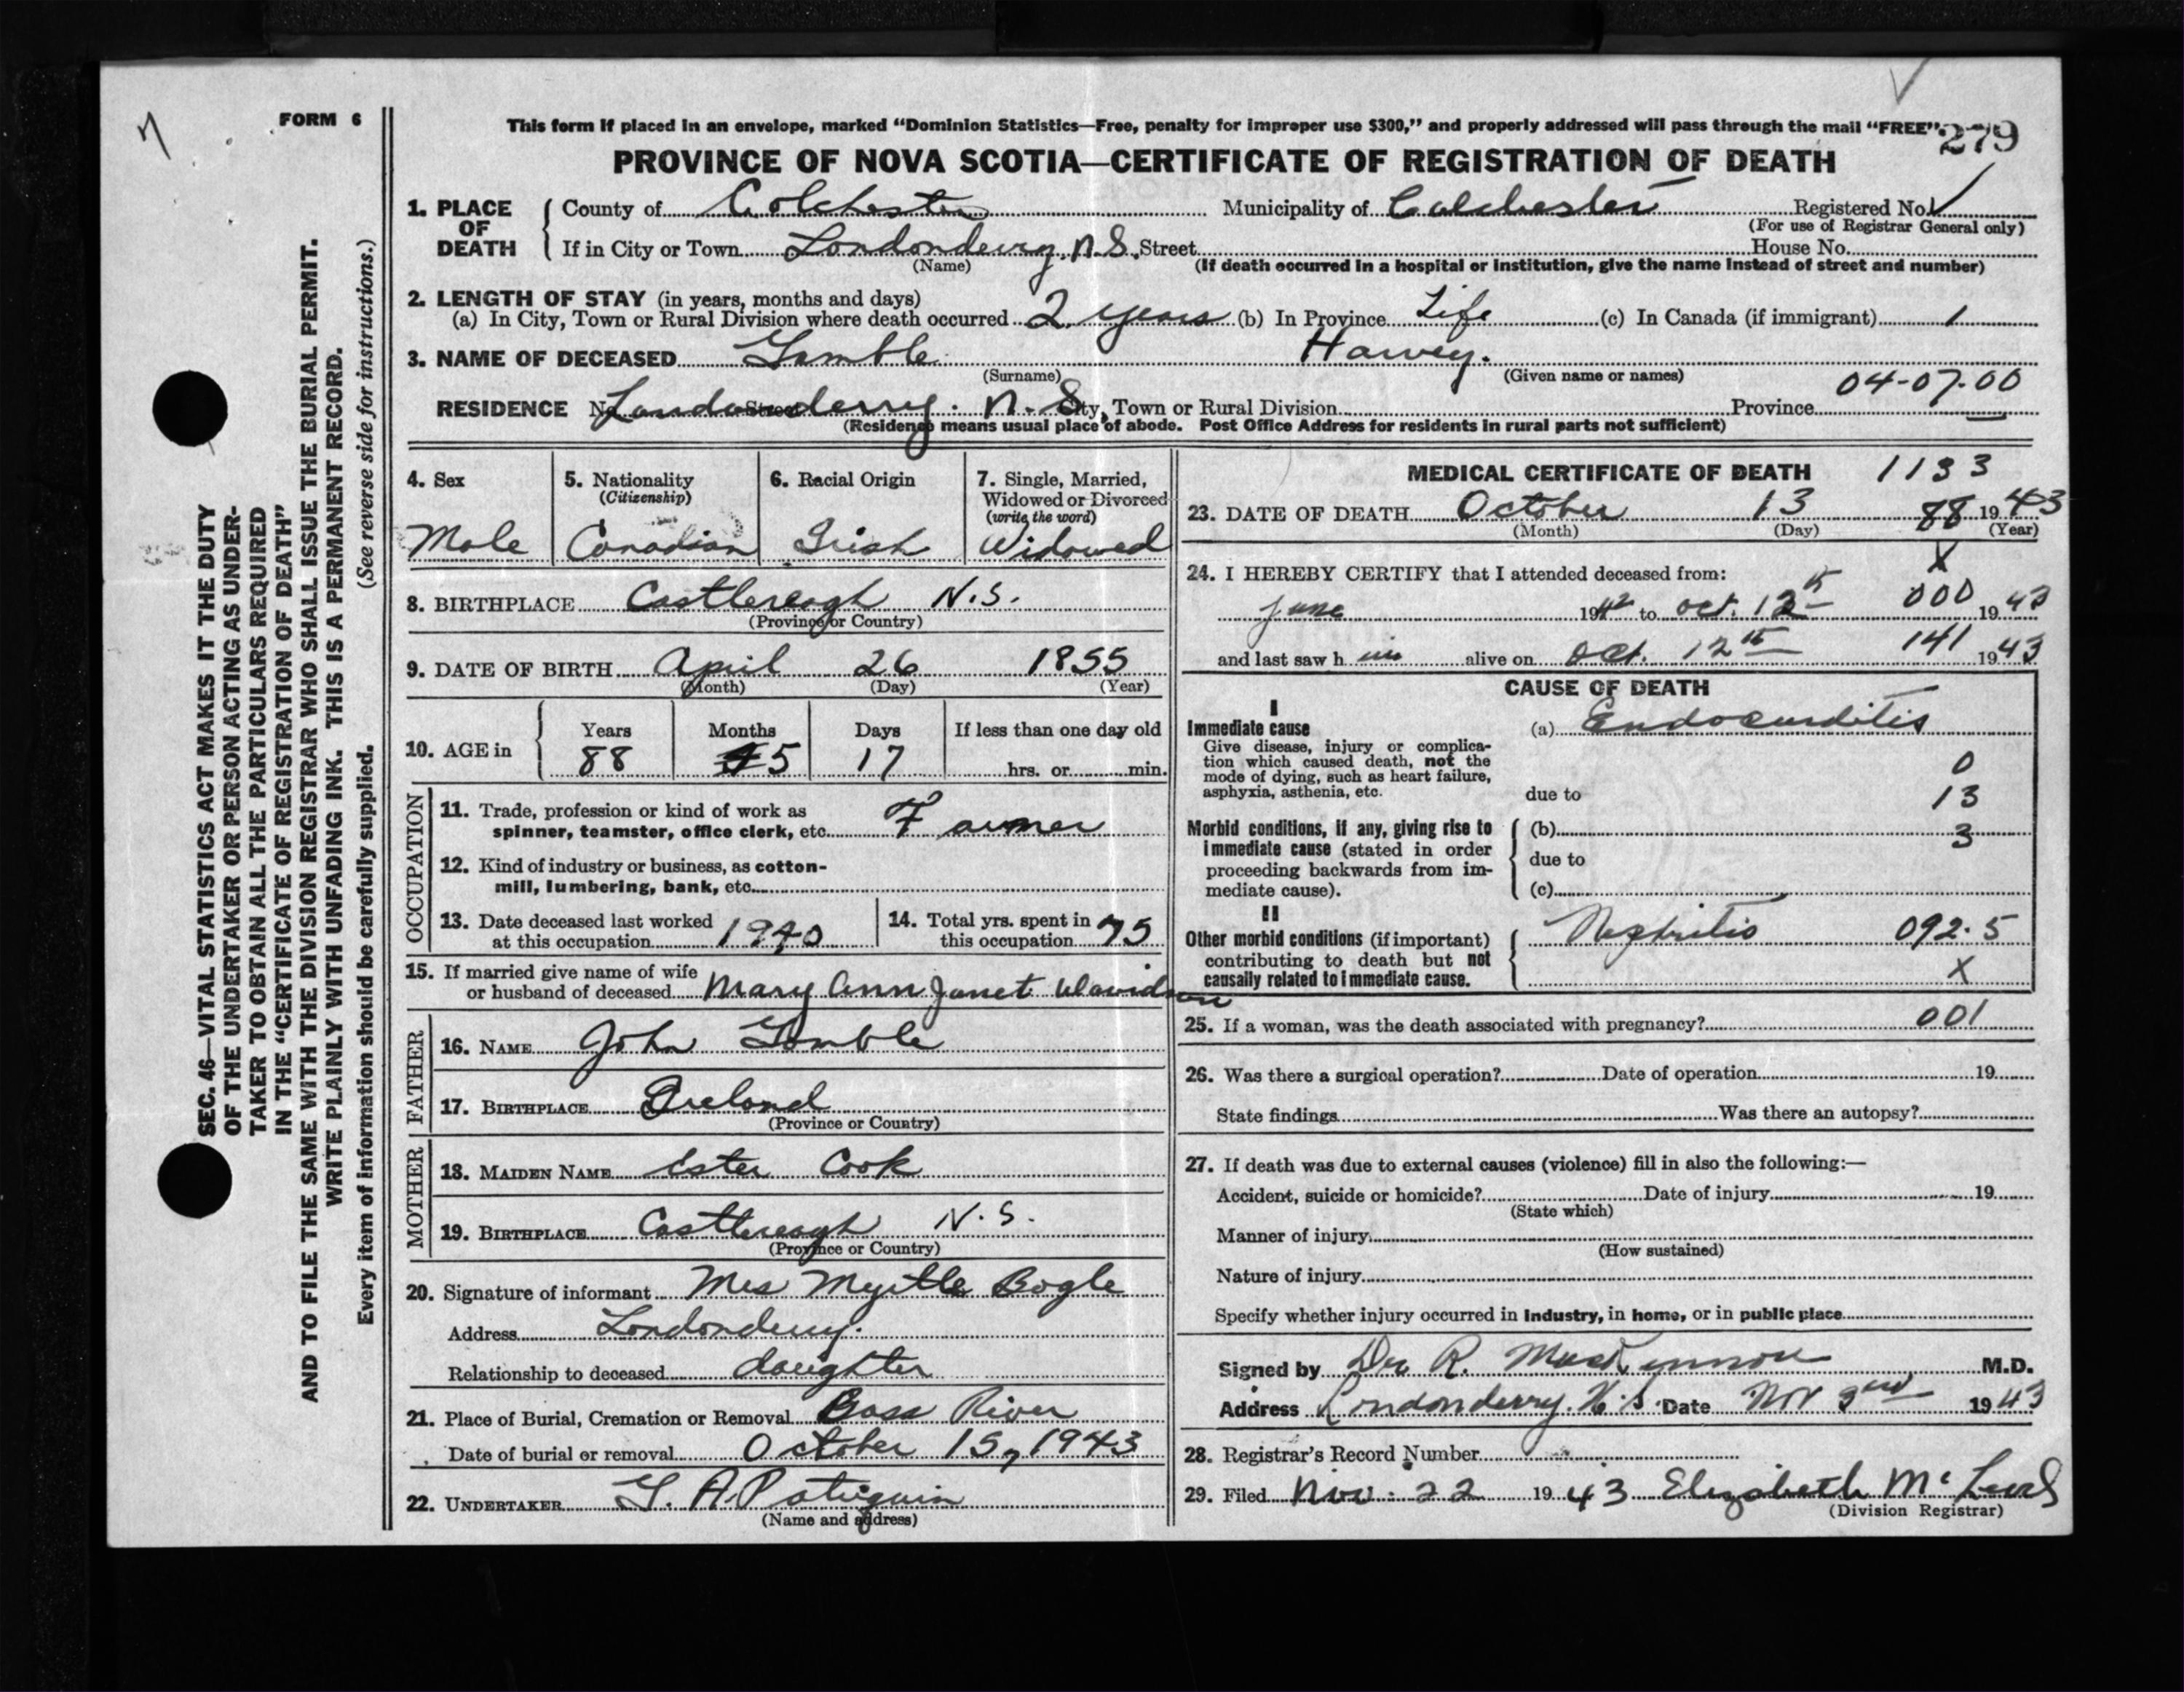 FORM 6
This form if placed in an envelope, marked “Dominion Statistics—Free, penalty for improper use $300,” and properly addressed will pass through the mail “FREE”.
279
PROVINCE OF NOVA SCOTIA—CERTIFICATE OF REGISTRATION OF DEATH
1. PLACE OF DEATH
County of Colchester Municipality of Colchester Registered No.
(For use of Registrar General only)
If in City or Town Londonderry, N.S. Street House No.
(Name) (If death occurred in a hospital or institution, give the name instead of street and number)
2. LENGTH OF STAY (in years, months and days)
(a) In City, Town or Rural Division where death occurred 2 years (b) In Province Life (c) In Canada (if immigrant) 1
3. NAME OF DECEASED Gamble Harvey.
(Surname) (Given name or names)
04-07-00
RESIDENCE No. Londonderry. N.S. Street City, Town or Rural Division Province
(Residence means usual place of abode. Post Office Address for residents in rural parts not sufficient)
4. Sex
Male
5. Nationality
(Citizenship)
Canadian
6. Racial Origin
Irish
7. Single, Married,
Widowed or Divorced
(write the word)
Widowed
8. BIRTHPLACE Castlereagh N.S.
(Province or Country)
9. DATE OF BIRTH April 26 1855
(Month) (Day) (Year)
10. AGE in
Years Months Days If less than one day old
88 5 17 hrs. or min.
OCCUPATION
11. Trade, profession or kind of work as
spinner, teamster, office clerk, etc. Farmer
12. Kind of industry or business, as cotton-
mill, lumbering, bank, etc.
13. Date deceased last worked
at this occupation 1940
14. Total yrs. spent in
this occupation 75
15. If married give name of wife
or husband of deceased Mary Ann Janet Davidson
FATHER
16. NAME John Gamble
17. BIRTHPLACE Ireland
(Province or Country)
MOTHER
18. MAIDEN NAME Ester Cook
19. BIRTHPLACE Castlereagh N.S.
(Province or Country)
20. Signature of informant Mrs Myrtle Bogle
Address Londonderry.
Relationship to deceased daughter
21. Place of Burial, Cremation or Removal Bass River
Date of burial or removal October 15, 1943
22. UNDERTAKER G. A. Patriquin
(Name and address)
MEDICAL CERTIFICATE OF DEATH 1133
23. DATE OF DEATH October 13 88 1943
(Month) (Day) (Year)
X
24. I HEREBY CERTIFY that I attended deceased from:
June 1942 to Oct. 12th 000 1943
and last saw h im alive on Oct. 12th 141 1943
CAUSE OF DEATH
I
Immediate cause
Give disease, injury or complica-
tion which caused death, not the
mode of dying, such as heart failure,
asphyxia, asthenia, etc.
(a) Endocarditis
0
due to 13
Morbid conditions, if any, giving rise to
immediate cause (stated in order
proceeding backwards from im-
mediate cause).
(b) 3
due to
(c)
II
Other morbid conditions (if important)
contributing to death but not
causally related to immediate cause.
Nephritis 092.5
X
25. If a woman, was the death associated with pregnancy? 001
26. Was there a surgical operation? Date of operation 19
State findings Was there an autopsy?
27. If death was due to external causes (violence) fill in also the following:—
Accident, suicide or homicide? Date of injury 19
(State which)
Manner of injury
(How sustained)
Nature of injury
Specify whether injury occurred in industry, in home, or in public place
Signed by Dr R. MacKinnon M.D.
Address Londonderry. N.S. Date Nov 3rd 1943
28. Registrar's Record Number
29. Filed Nov. 22 1943 Elizabeth
(Division Registrar)
SEC. 46—VITAL STATISTICS ACT MAKES IT THE DUTY
OF THE UNDERTAKER OR PERSON ACTING AS UNDER-
TAKER TO OBTAIN ALL THE PARTICULARS REQUIRED
IN THE “CERTIFICATE OF REGISTRATION OF DEATH”
AND TO FILE THE SAME WITH THE DIVISION REGISTRAR WHO SHALL ISSUE THE BURIAL PERMIT.
WRITE PLAINLY WITH UNFADING INK. THIS IS A PERMANENT RECORD.
Every item of information should be carefully supplied. (See reverse side for instructions.)